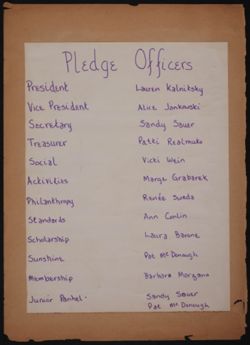 Pledge Officers
President Lauren Kalnitsky
Vice President Alice Jankowski
Secretary Sandy Sauer
Treasurer Patti Realmuto
Social Vicki Wein
Activities Marge Grabarek
Philanthropy Renée Sweda
Standards Ann Conlin
Scholarship Laura Barone
Sunshine Pat McDonough
Membership Barbara Morgano
Junior Panhel. Sandy Sauer
Pat McDonough